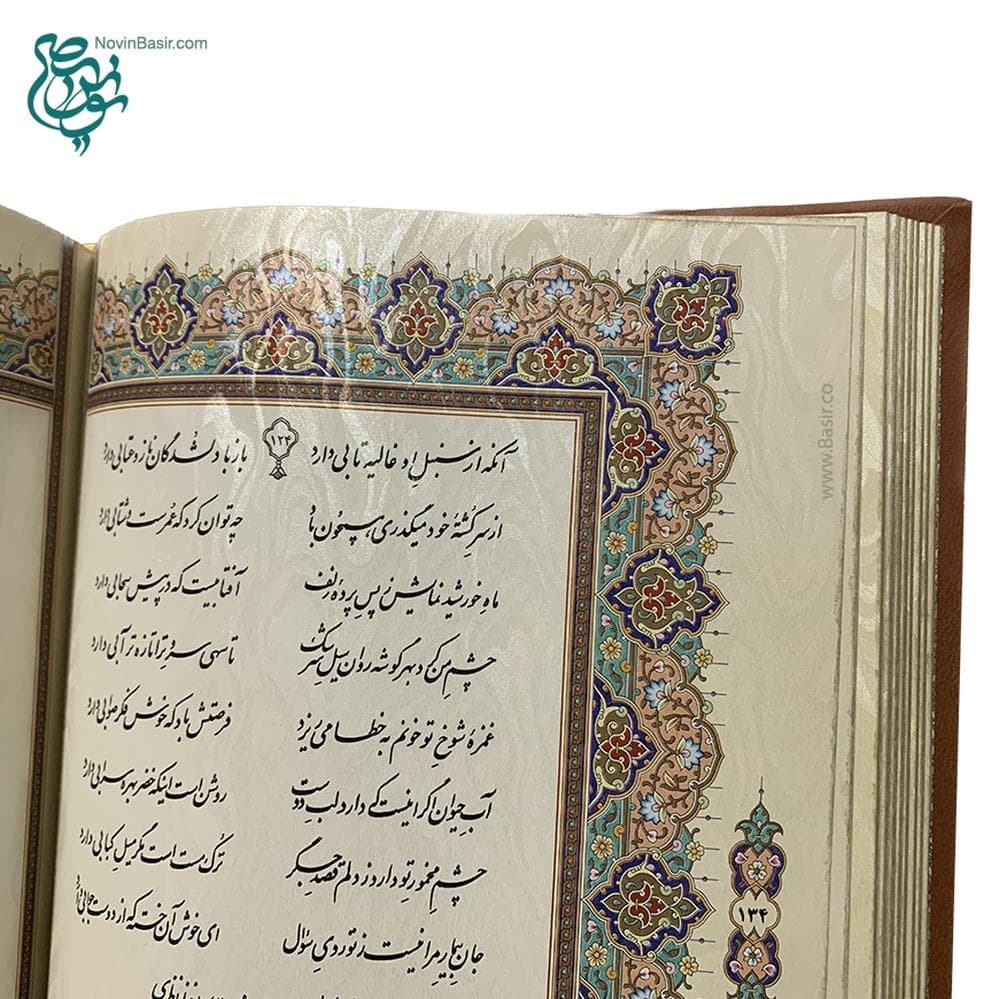 NovinBasir.com
نوین بصیر
۱۲۴
آنکه از سنبلِ او غالیه تابی دارد باز با دلشدگان ناز و عتابی دارد
از سرِ کشتهٔ خود میگذری همچون باد چه توان کرد که عمرست و شتابی دارد
ماهِ خورشید نمایش ز پسِ پردهٔ زلف آفتابیست که در پیش سحابی دارد
چشمِ من کرد بهر گوشه روان سیلِ سرشک تا سهی سروِ ترا تازه تر آبی دارد
غمزهٔ شوخِ تو خونم به خطا می ریزد فرصتش باد که خوش فکرِ صوابی دارد
آبِ حیوان اگر اینست که دارد لبِ دوست روشن است اینکه خضر بهره سرابی دارد
چشمِ مخمورِ تو دارد ز دلم قصدِ جگر ترکِ مست است مگر میلِ کبابی دارد
جانِ بیمارِ مرا نیست ز تو روی سؤال ای خوش آن خسته که از دوست جوابی دارد
۱۳۴
www.Basir.co